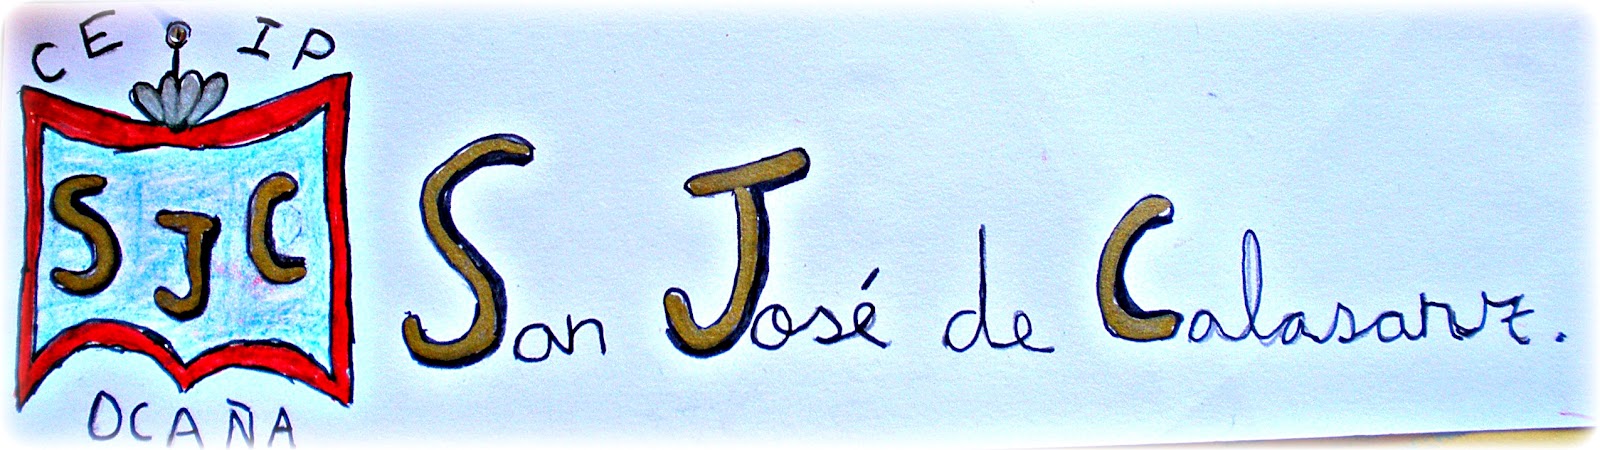 CE IP
SJC
OCAÑA
San José de Calasanz.